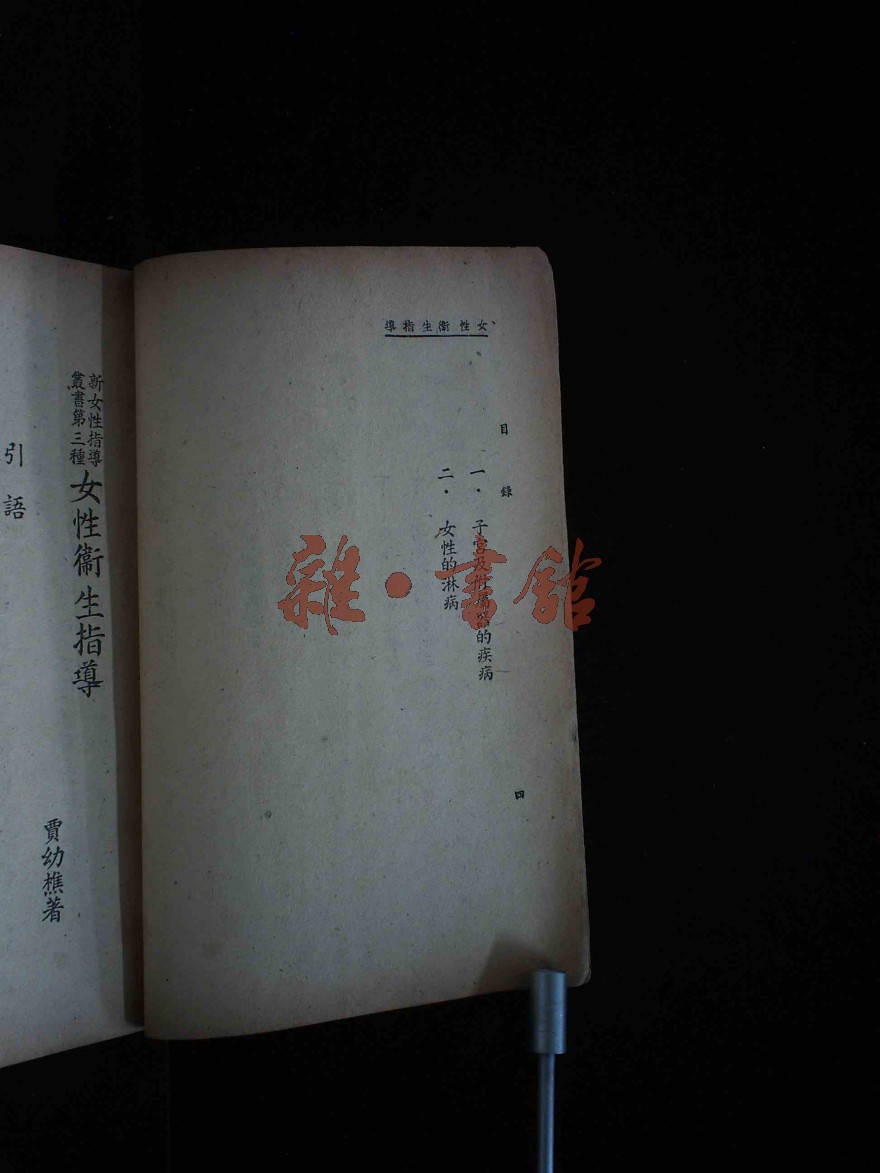 女性衞生指導
目錄
一・子宮及附屬器的疾病
二・女性的淋病
四
新女性指導
叢書第三種
女性衞生指導
賈幼樵著
引語
雜・書館